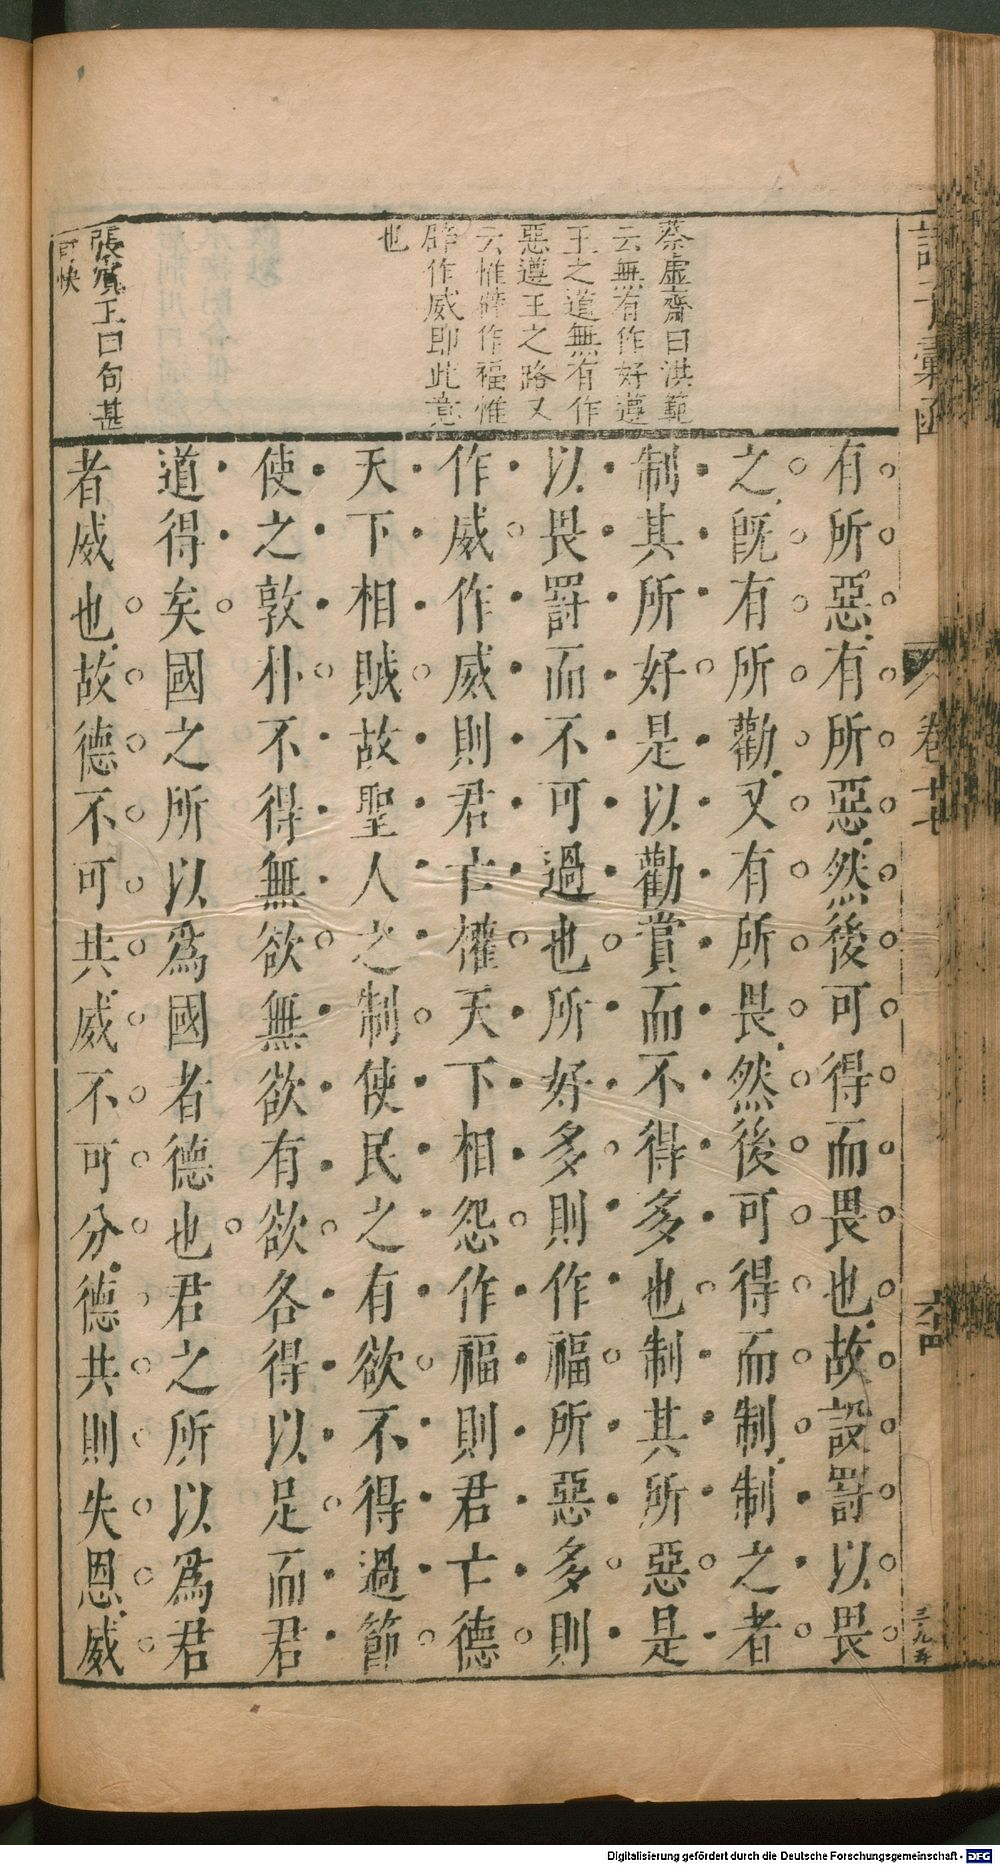 蔡虛齋曰洪範
云無有作好遵
王之道無有作
惡遵王之路又
云惟辟作福惟
辟作威即此意
也
張賓王曰句甚
可快
有所惡有所惡然後可得而畏也故設罸以畏
之旣有所勸又有所畏然後可得而制制之者
制其所好是以勸賞而不得多也制其所惡是
以畏罸而不可過也所好多則作福所惡多則
作威作威則君亡權天下相怨作福則君亡德
天下相賊故聖人之制使民之有欲不得過節
使之敦朴不得無欲無欲有欲各得以足而君
道得矣國之所以爲國者德也君之所以爲君
者威也故德不可共威不可分德共則失恩威
彙函
卷十七
三九五
Digitalisierung gefördert durch die Deutsche Forschungsgemeinschaft - DFG